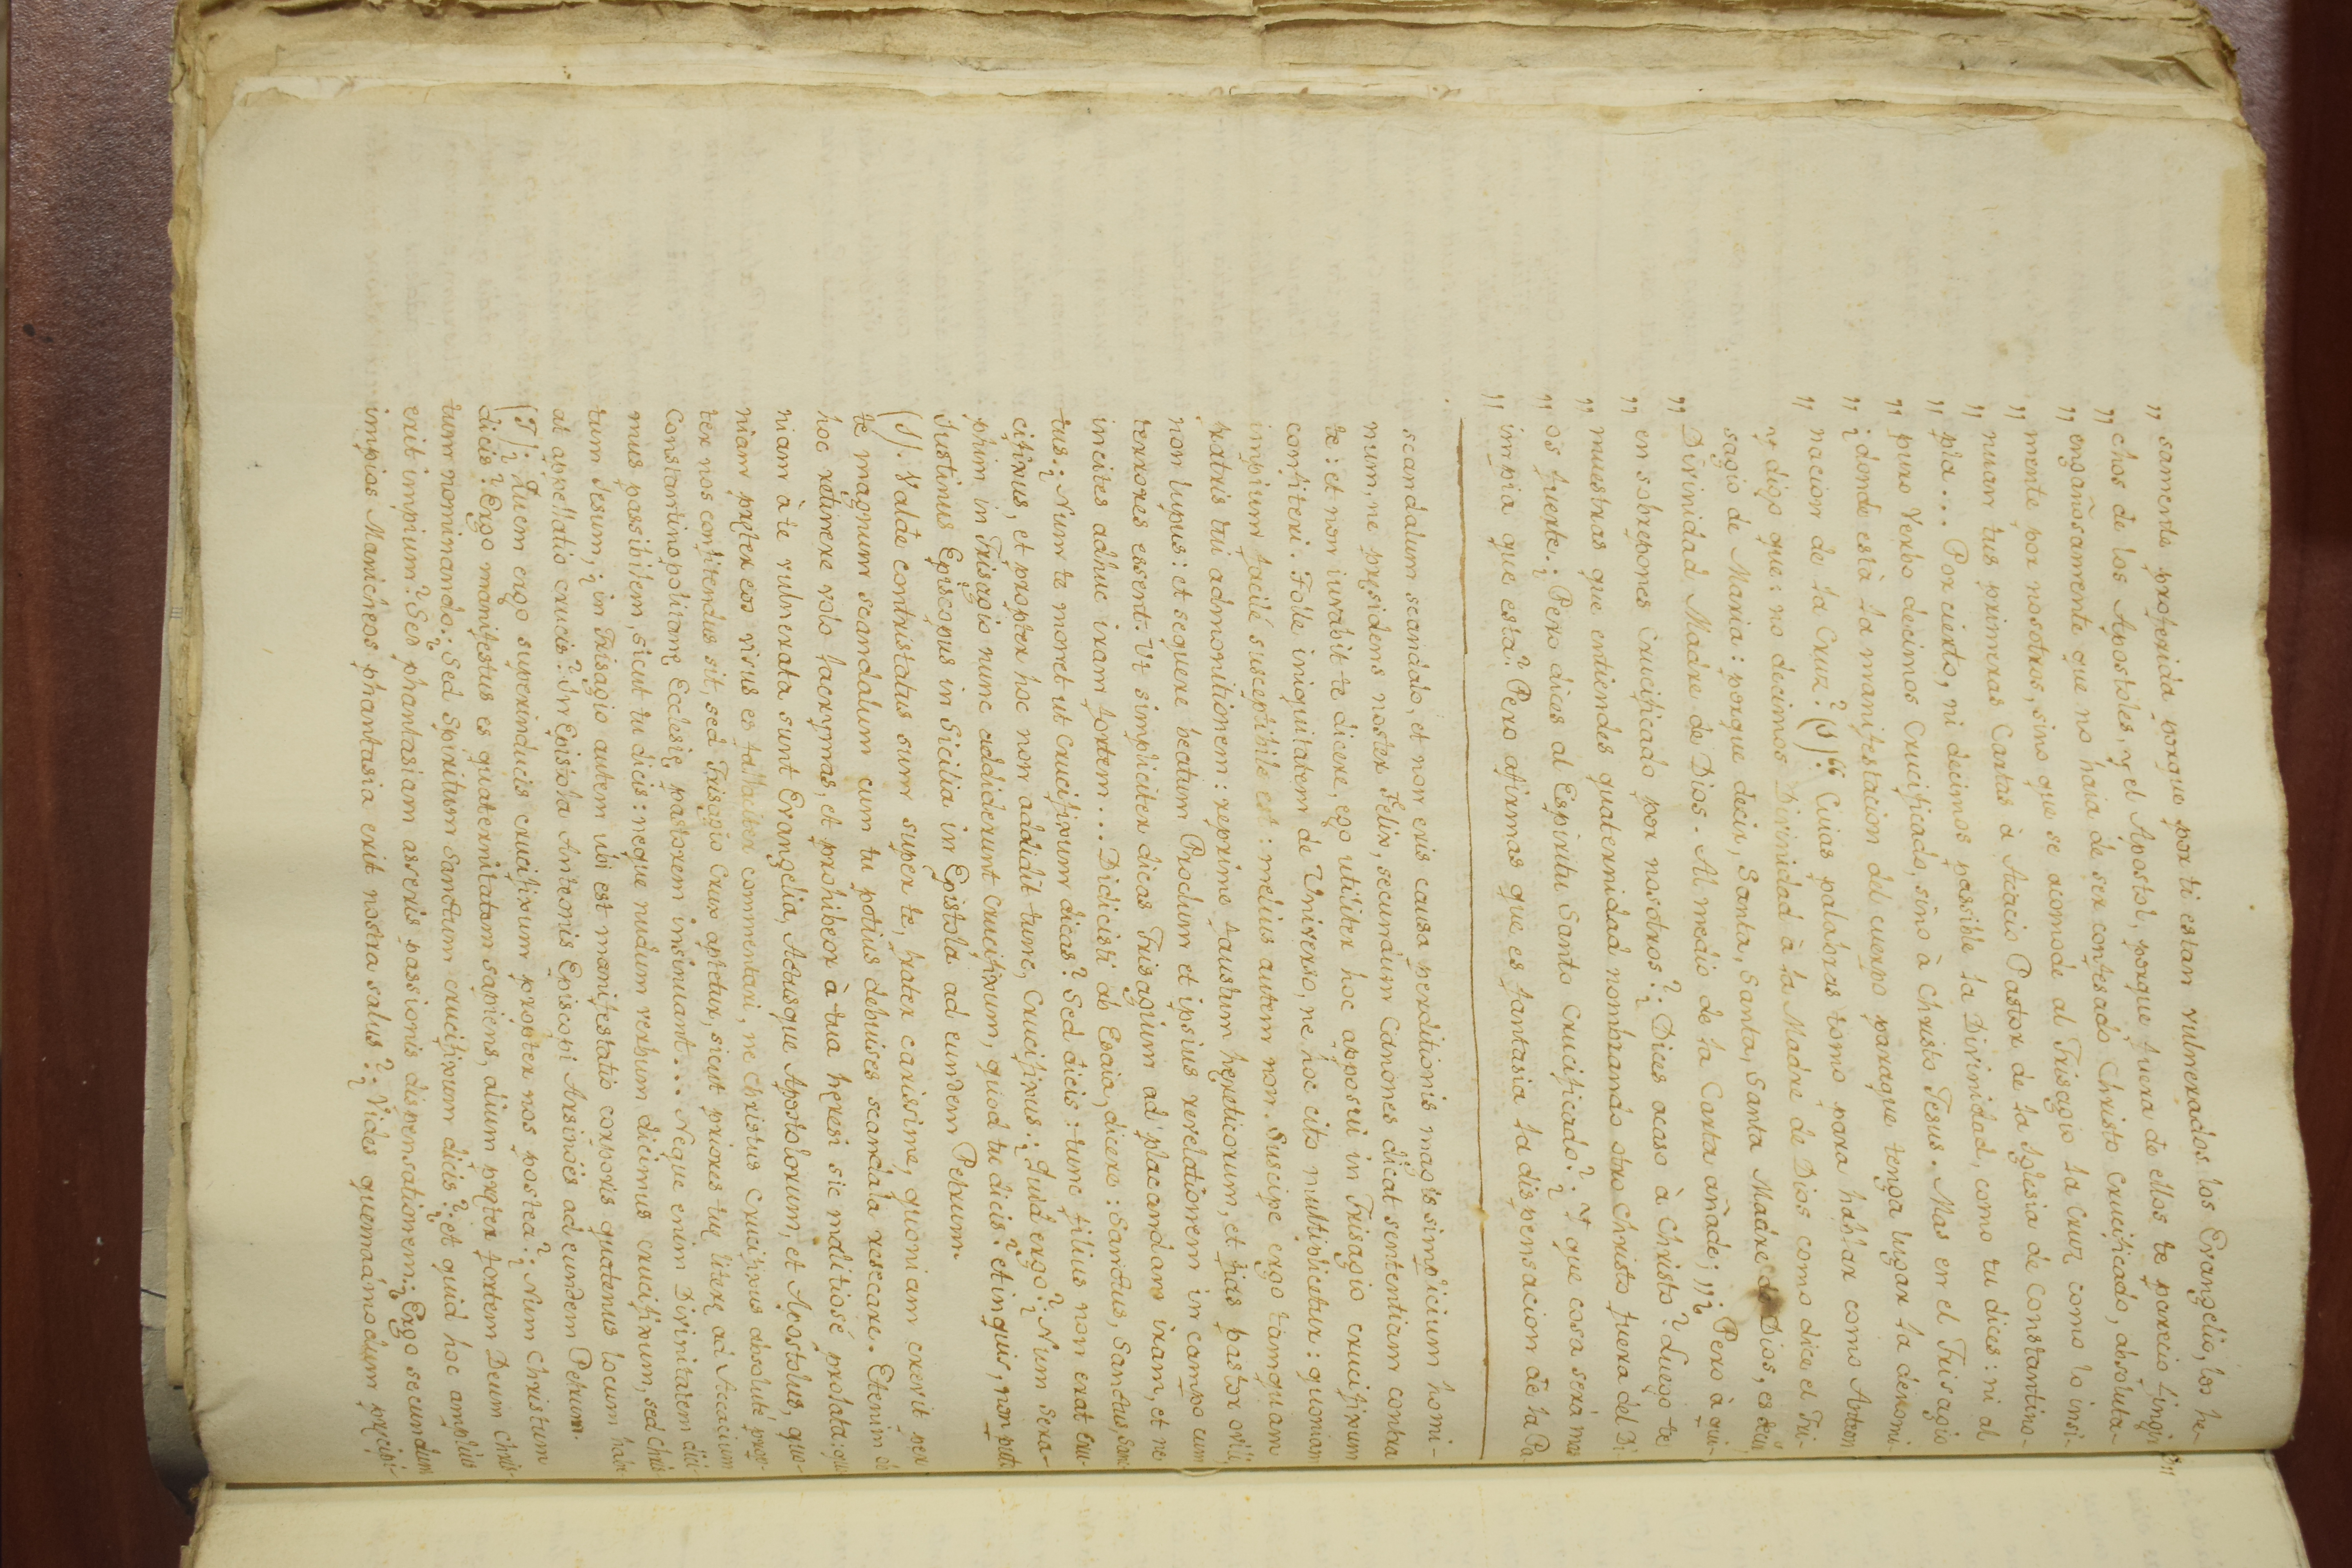 „ samente proferida porque por ti estan vulnerados los Evangelio, los he-
„ chos de los Apostoles, y el Apostol, porque fuera de ellos te parecio fingir
„ engañosamente que no haia de ser confesado Christo Crucificado, absoluta-
„ mente por nosotros, sino que se acomode al Trisagio la Cruz como lo insi-
„ nuan tus primeras Cartas à Acacio Pastor de la Iglesia de Constantino-
„ pla... Por cierto, ni decimos pasible la Divinidad, como tu dices: ni al
„ puro Verbo decimos Crucificado, sino à Christo Jesus. Mas en el Trisagio
„ ¿donde està la manifestacion del cuerpo paraque tenga lugar la denomi-
„ nacion de la Cruz? (S)“ Cuias palabras tomo para hablar como Anteon
y digo que: no decimos Divinidad à la Madre de Dios como dice el Tri-
sagio de Maria: porque decir, Santa, Santa, Santa Madre de Dios, es decir,
„ Divinidad Madre de Dios. Al medio de la Carta añade; „¿Pero à qui-
„ en sobrepones Crucificado por nosotros?¿Dices acaso à Christo? Luego te
„ muestras que entiendes quaternidad nombrando otro Christo fuera del Di-
„ os fuerte.¿Pero dices al Espiritu Santo Crucificado?¿Y que cosa serà mas
„ impia que esta? Pero afirmas que es fantasia la dispensacion de la Pa-
scandalum scandalo, et non eris causa perditionis magis simplicium homi-
num, ne præsidens noster Felix, secundum Canones dicat sententiam contra
te: et non iuvabit te dicere, ego utiliter hoc apposui in Trisagio crucifixum
confiteri. Tolle iniquitatem de Universo, ne hoc cito multiplicetur: quoniam
impium facilé susceptibile est: melius autem non. Suscipe ergo tamquam
fratris tui admonitionem: reprime faustum hæreticorum, et fias pastor ovili,
non lupus: et sequere beatum Proclum et ipsius revelationem in campo cum
terrores essent. Ut simpliciter dicas Trisagium ad placandam iram, et ne
incites adhuc iram fortem... Didicisti ab Esaia, dicere: Sanctus, Sanctus, Sanc-
tus.¿Num te monet ut crucifixum dicas? Sed dicis: tunc filius non erat cru-
cifixus, et propter hoc non addidit tunc, Crucifixus.¿Quid ergo?¿Num Sera-
phim in Trisagio nunc addiderunt crucifixum, quod tu dicis? et inquis, non pute.
Justinus Episcopus in Sicilia in Epistola ad eundem Petrum.
(S). Valde contristatus sum super te, frater carissime, quoniam crevit per
te magnum scandalum cum tu potius debuises scandala resecare. Etenim ob
hoc retinere volo lacrymas, et prohibeor à tua hæresi sic malitiosé prolata: quo-
niam à te vulnerata sunt Evangelia, Actusque Apostolorum, et Apostolus, quo-
niam præter eos visus es fallaciter commentari, ne Christus Crucifixus absoluté prop-
ter nos confitendus sit, sed Trisagio Crux aptetur, sicut priores tuæ literæ ad Accacium
Constantinopolitanæ Ecclesiæ pastorem insinuant... Neque enim Divinitatem dici-
mus passibilem, sicut tu dicis: neque nudum verbum dicimus crucifixum, sed Chris-
tum Jesum, ¿in Trisagio autem ubi est manifestatio corporis quatenus locum habe-
at appellatio crucis? In Epistola Anteonis Episcopi Arsinöes ad eundem Petrum.
(T).¿Quem ergo superinducis crucifixum propter nos postea?¿Num Christum
dicis? Ergo manifestus es quaternitatem sapiens, alium præter fortem Deum Chris-
tum nominando.¿Sed Spiritum Sanctum crucifixum dicis?¿et quid hoc amplius
erit impium? Sed phantasiam asseris passionis dispensationem.¿Ergo secundum
impios Manicheos phantasia erit nostra salus?¿Vides quemadmodum præcipi-